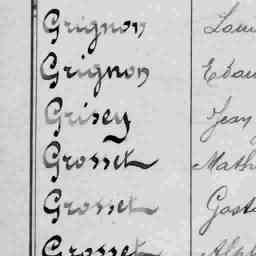 Grignon Loui
Grignon Edou
Grisey Jean
Grosset Math
Grosset Gast
Grosset Alph